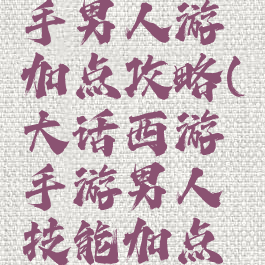 手男人游
加点攻略(
大话西游
手游男人
技能加点